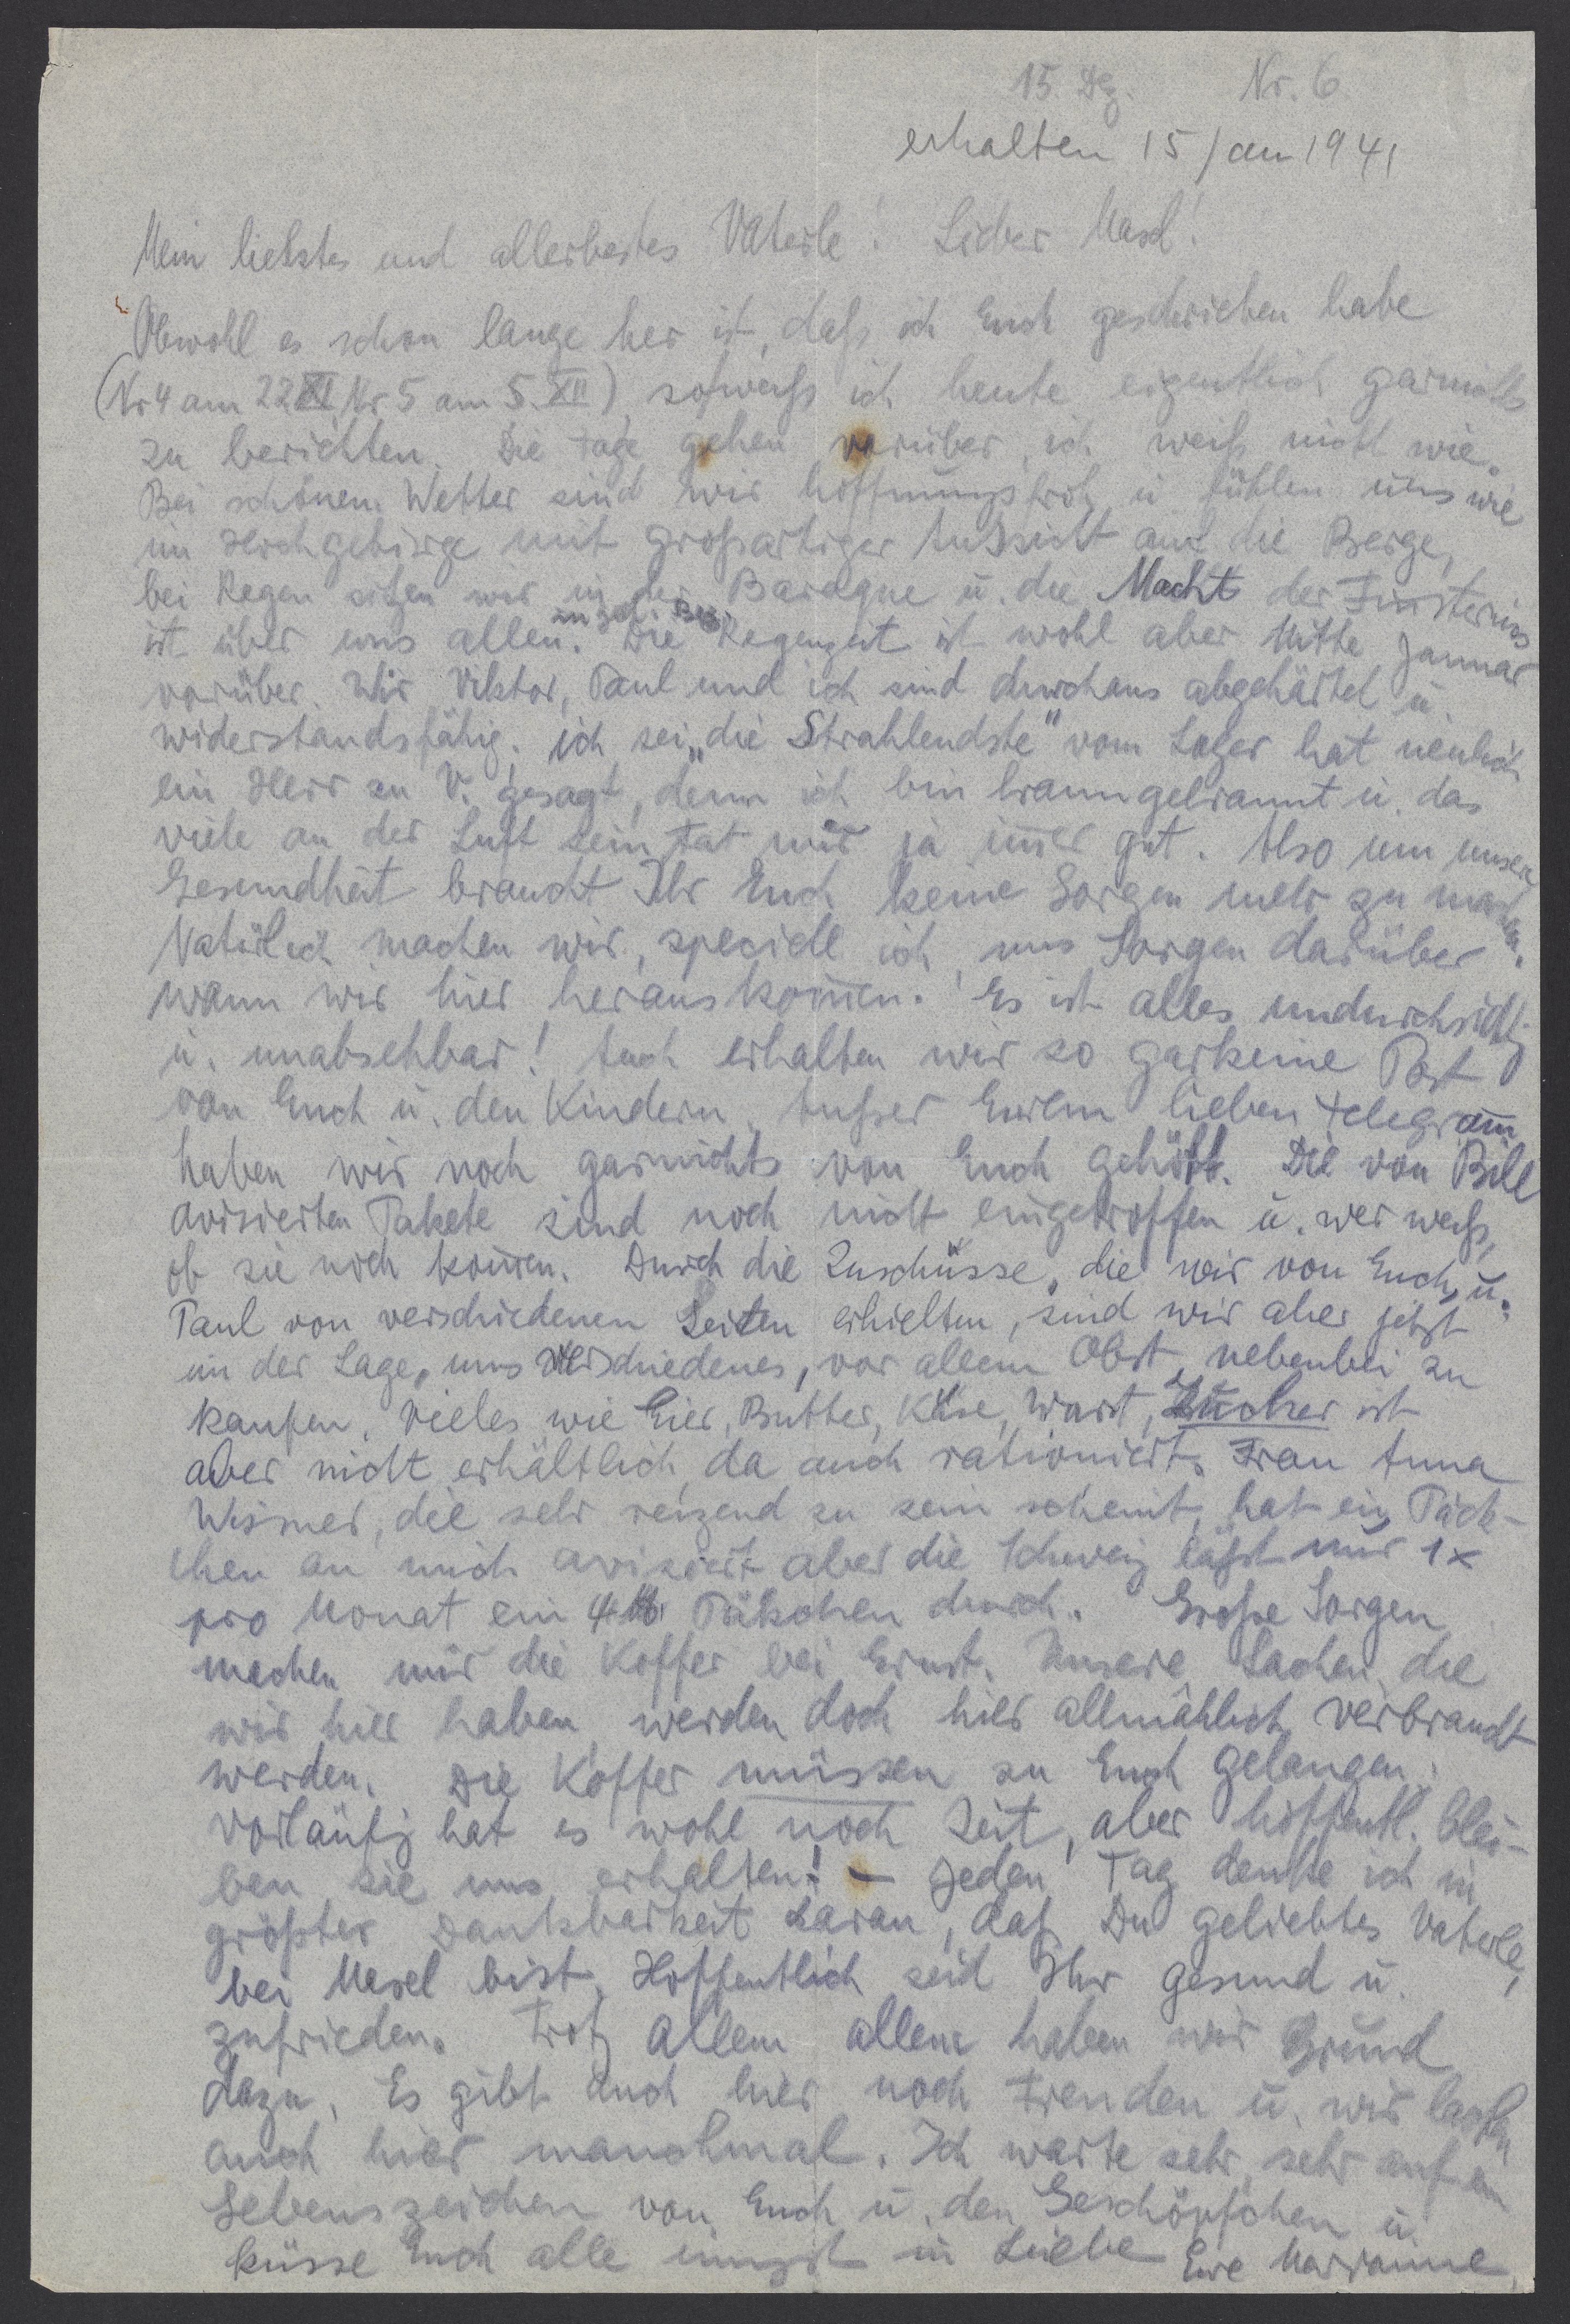 15. Dez. Nr. 6.
erhalten 15 Jan 1941
Mein liebstes und allerbestes Vaterle! Lieber Masel!
Obwohl es schon lange her ist, daß ich Euch geschrieben habe
(Nr 4 am 22 XI Nr 5 am 5. XII), so weiß ich heute eigentlich garnichts
zu berichten. Die Tage gehen vorüber, ich weiß nicht wie.
Bei schönem Wetter sind wir hoffnungsfroh u fühlen uns wie
im Hochgebirge mit großartiger Aussicht auf die Berge,
bei Regen sitzen wir in der Baraque u. die Macht der Finsternis
ist über uns allen. Die Regenzeit ist wohl aber Mitte Januar
vorüber. Wir, Viktor, Paul und ich sind durchaus abgehärtet u.
widerstandsfähig. ich sei „die Strahlendste" vom Lager hat neulich
ein Herr zu V. gesagt, denn ich bin braungebrannt u. das
viele an der Luft sein tat mir ja im̅er gut. Also um unsere
Gesundheit braucht Ihr Euch keine Sorgen mehr zu machen.
Natürlich machen wir, speciell ich, uns Sorgen darüber
wann wir hier herauskom̅en. Es ist alles undurchsichtig
u. unabsehbar! Auch erhalten wir so garkeine Post
von Euch u. den Kindern. Außer Eurem lieben Telegram̅
haben wir noch garnichts von Euch gehört. Die von Bill
avisierten Pakete sind noch nicht eingetroffen u. wer weiß,
ob sie noch kom̅en. Durch die Zuschüsse, die wir von Euch, u.
Paul von verschiedenen Seiten erhielten, sind wir aber jetzt
in der Lage, uns verschiedenes, vor allem Obst, nebenbei zu
kaufen. Vieles wie Eier, Butter, Käse, Wurst, Zucker ist
aber nicht erhältlich, da auch rationiert. Frau Anna
Wismer, die sehr reizend zu sein scheint, hat ein Päck-
chen an mich avisiert aber die Schweiz läßt nur 1x
pro Monat ein 4 ℔ Päkchen durch. Große Sorgen
machen mir die Koffer bei Ernst. Unsere Sachen, die
wir hier haben, werden doch hier allmählich verbraucht
werden. Die Koffer müssen zu Euch gelangen.
Vorläufig hat es wohl noch Zeit, aber hoffentl. blei-
ben sie uns erhalten! – Jeden Tag denke ich in
größter Dankbarkeit daran, daß Du geliebtes Vaterle,
bei Masel bist. Hoffentlich seid Ihr gesund u.
zufrieden. Trotz allem allem haben wir Grund
dazu. Es gibt auch hier noch Freuden u. wir lachen
auch hier manchmal. Ich warte sehr, sehr auf ein
Lebenszeichen von Euch u. den Geschöpfchen u.
küsse Euch alle innigst in Liebe Eure Marianne.